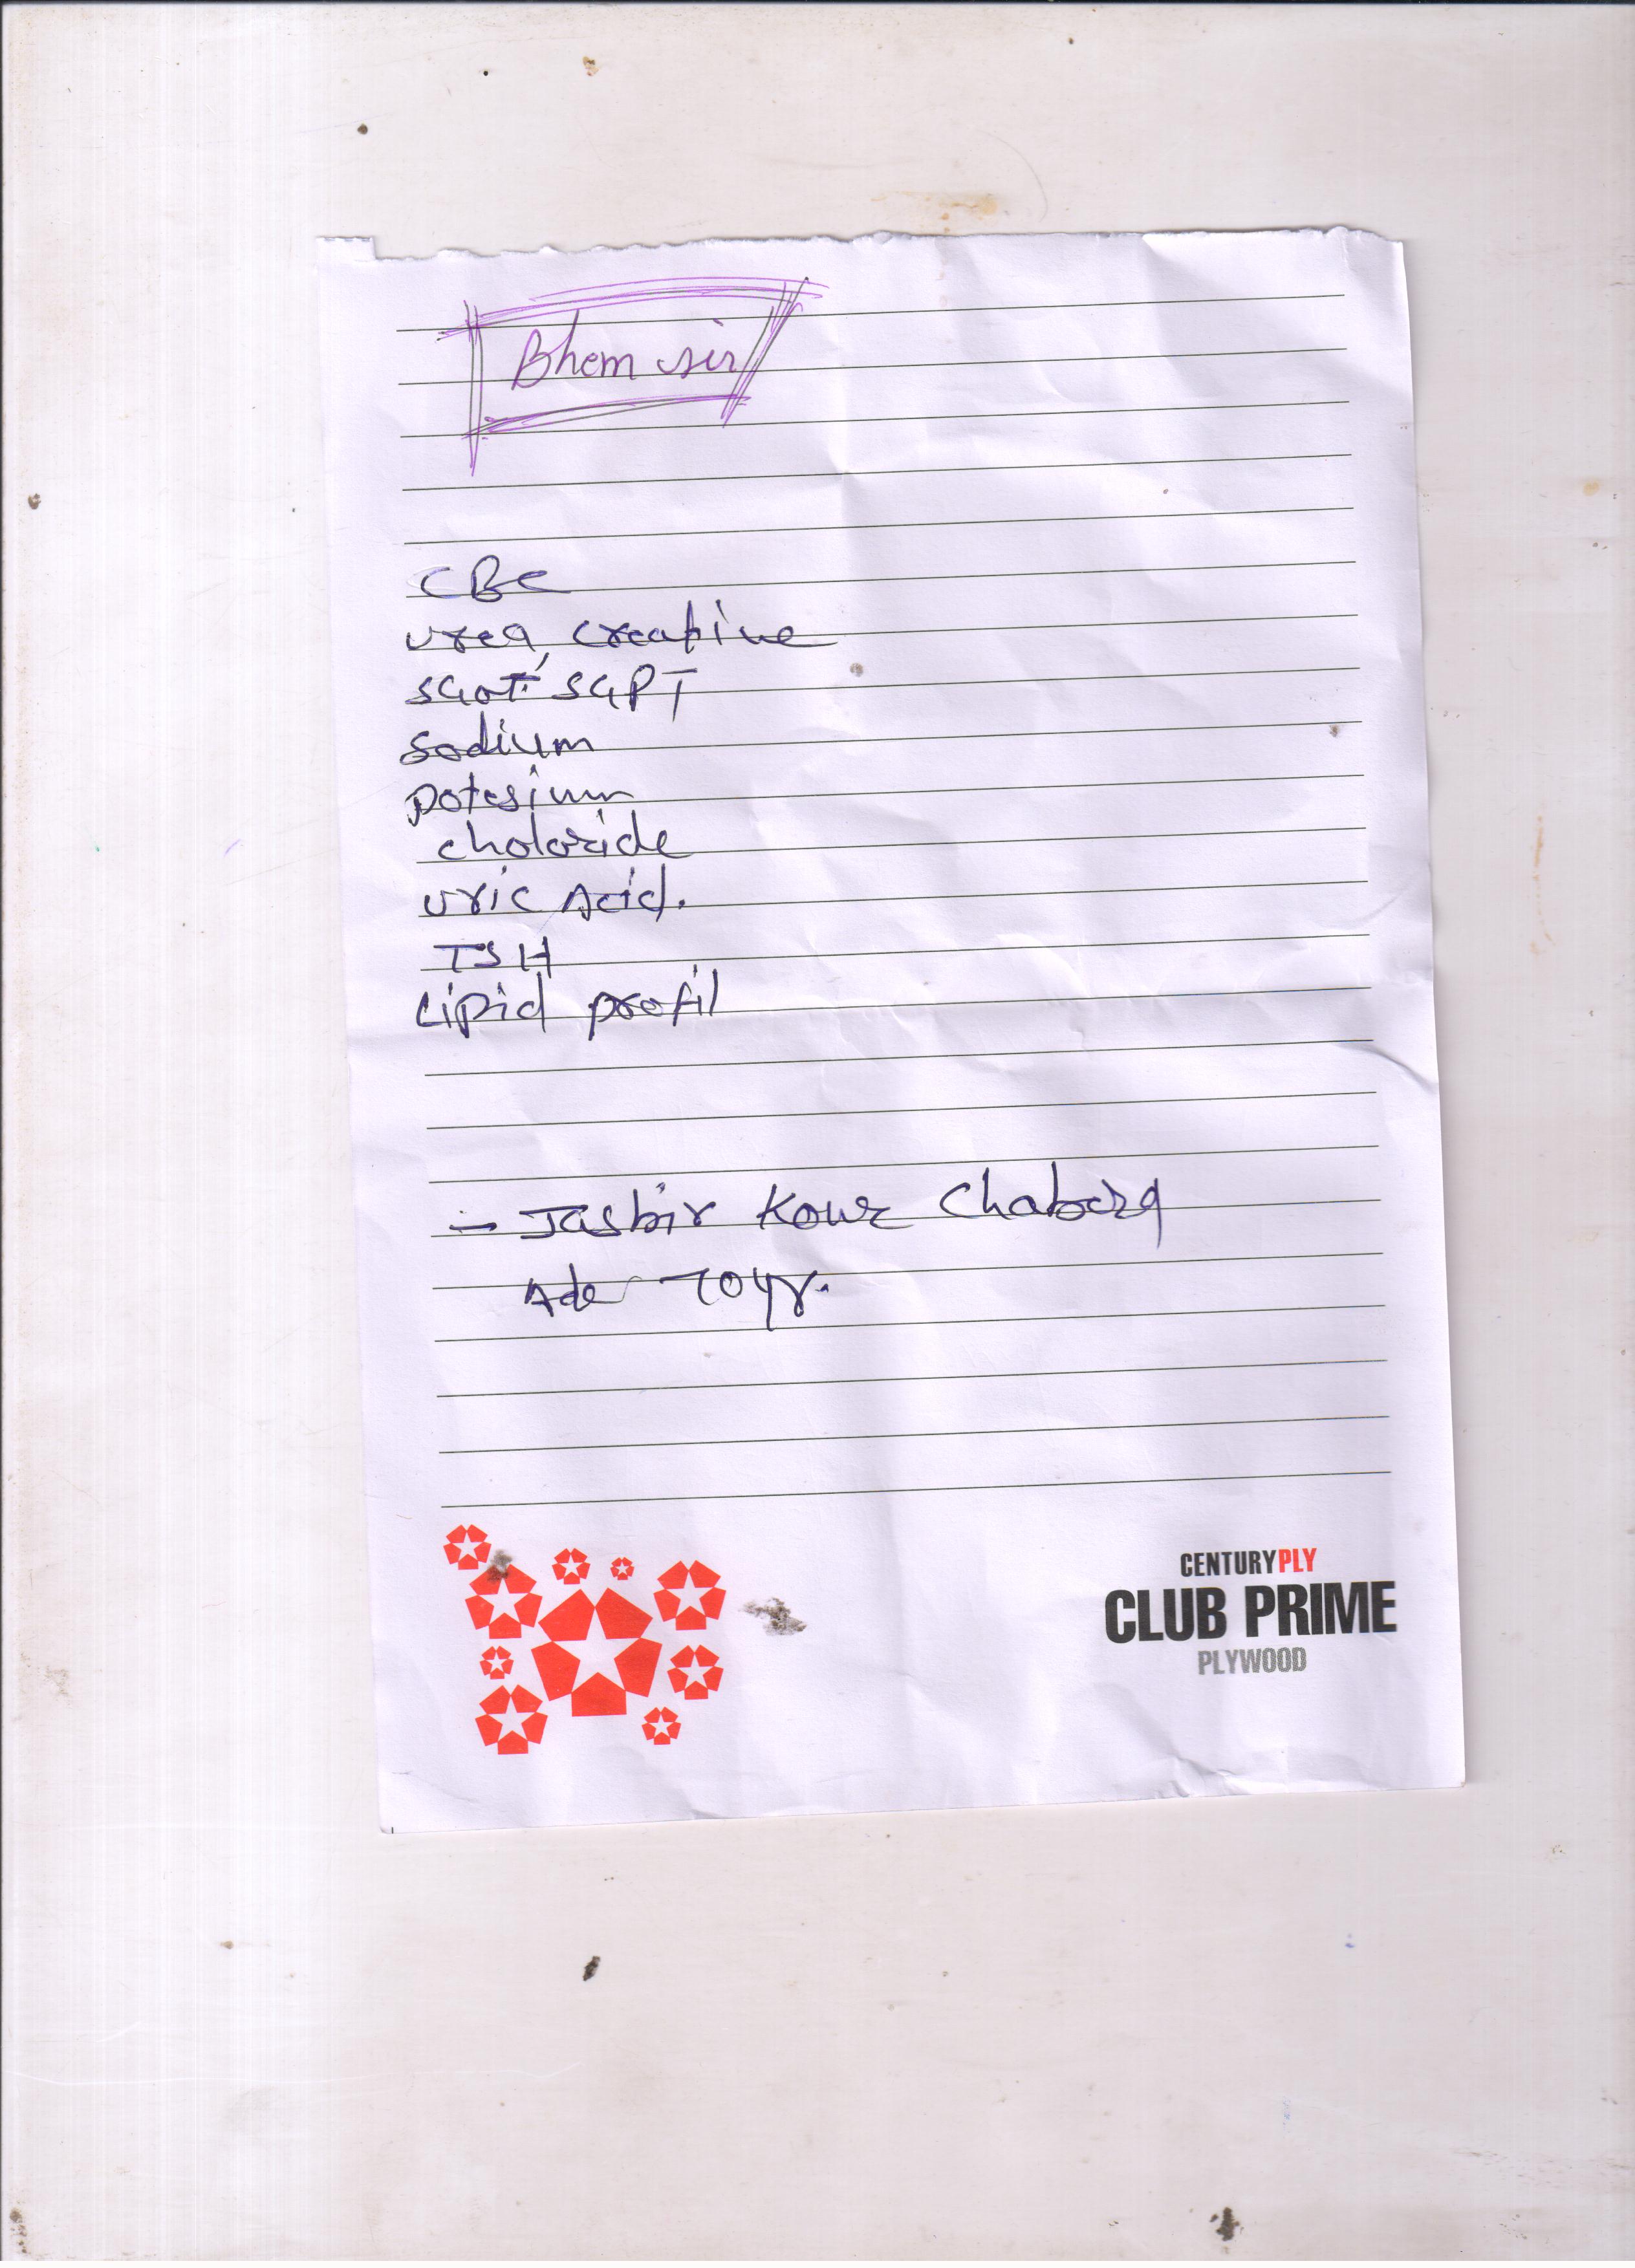 Bhem sir
CBC
urea, creatine
SGOT. SGPT
Sodium
potesium
choloride
uric Acid.
TSH
Lipid profil
- Jasbir Kour Chabara
Ade 70yr.
CENTURYPLY
CLUB PRIME
PLYWOOD